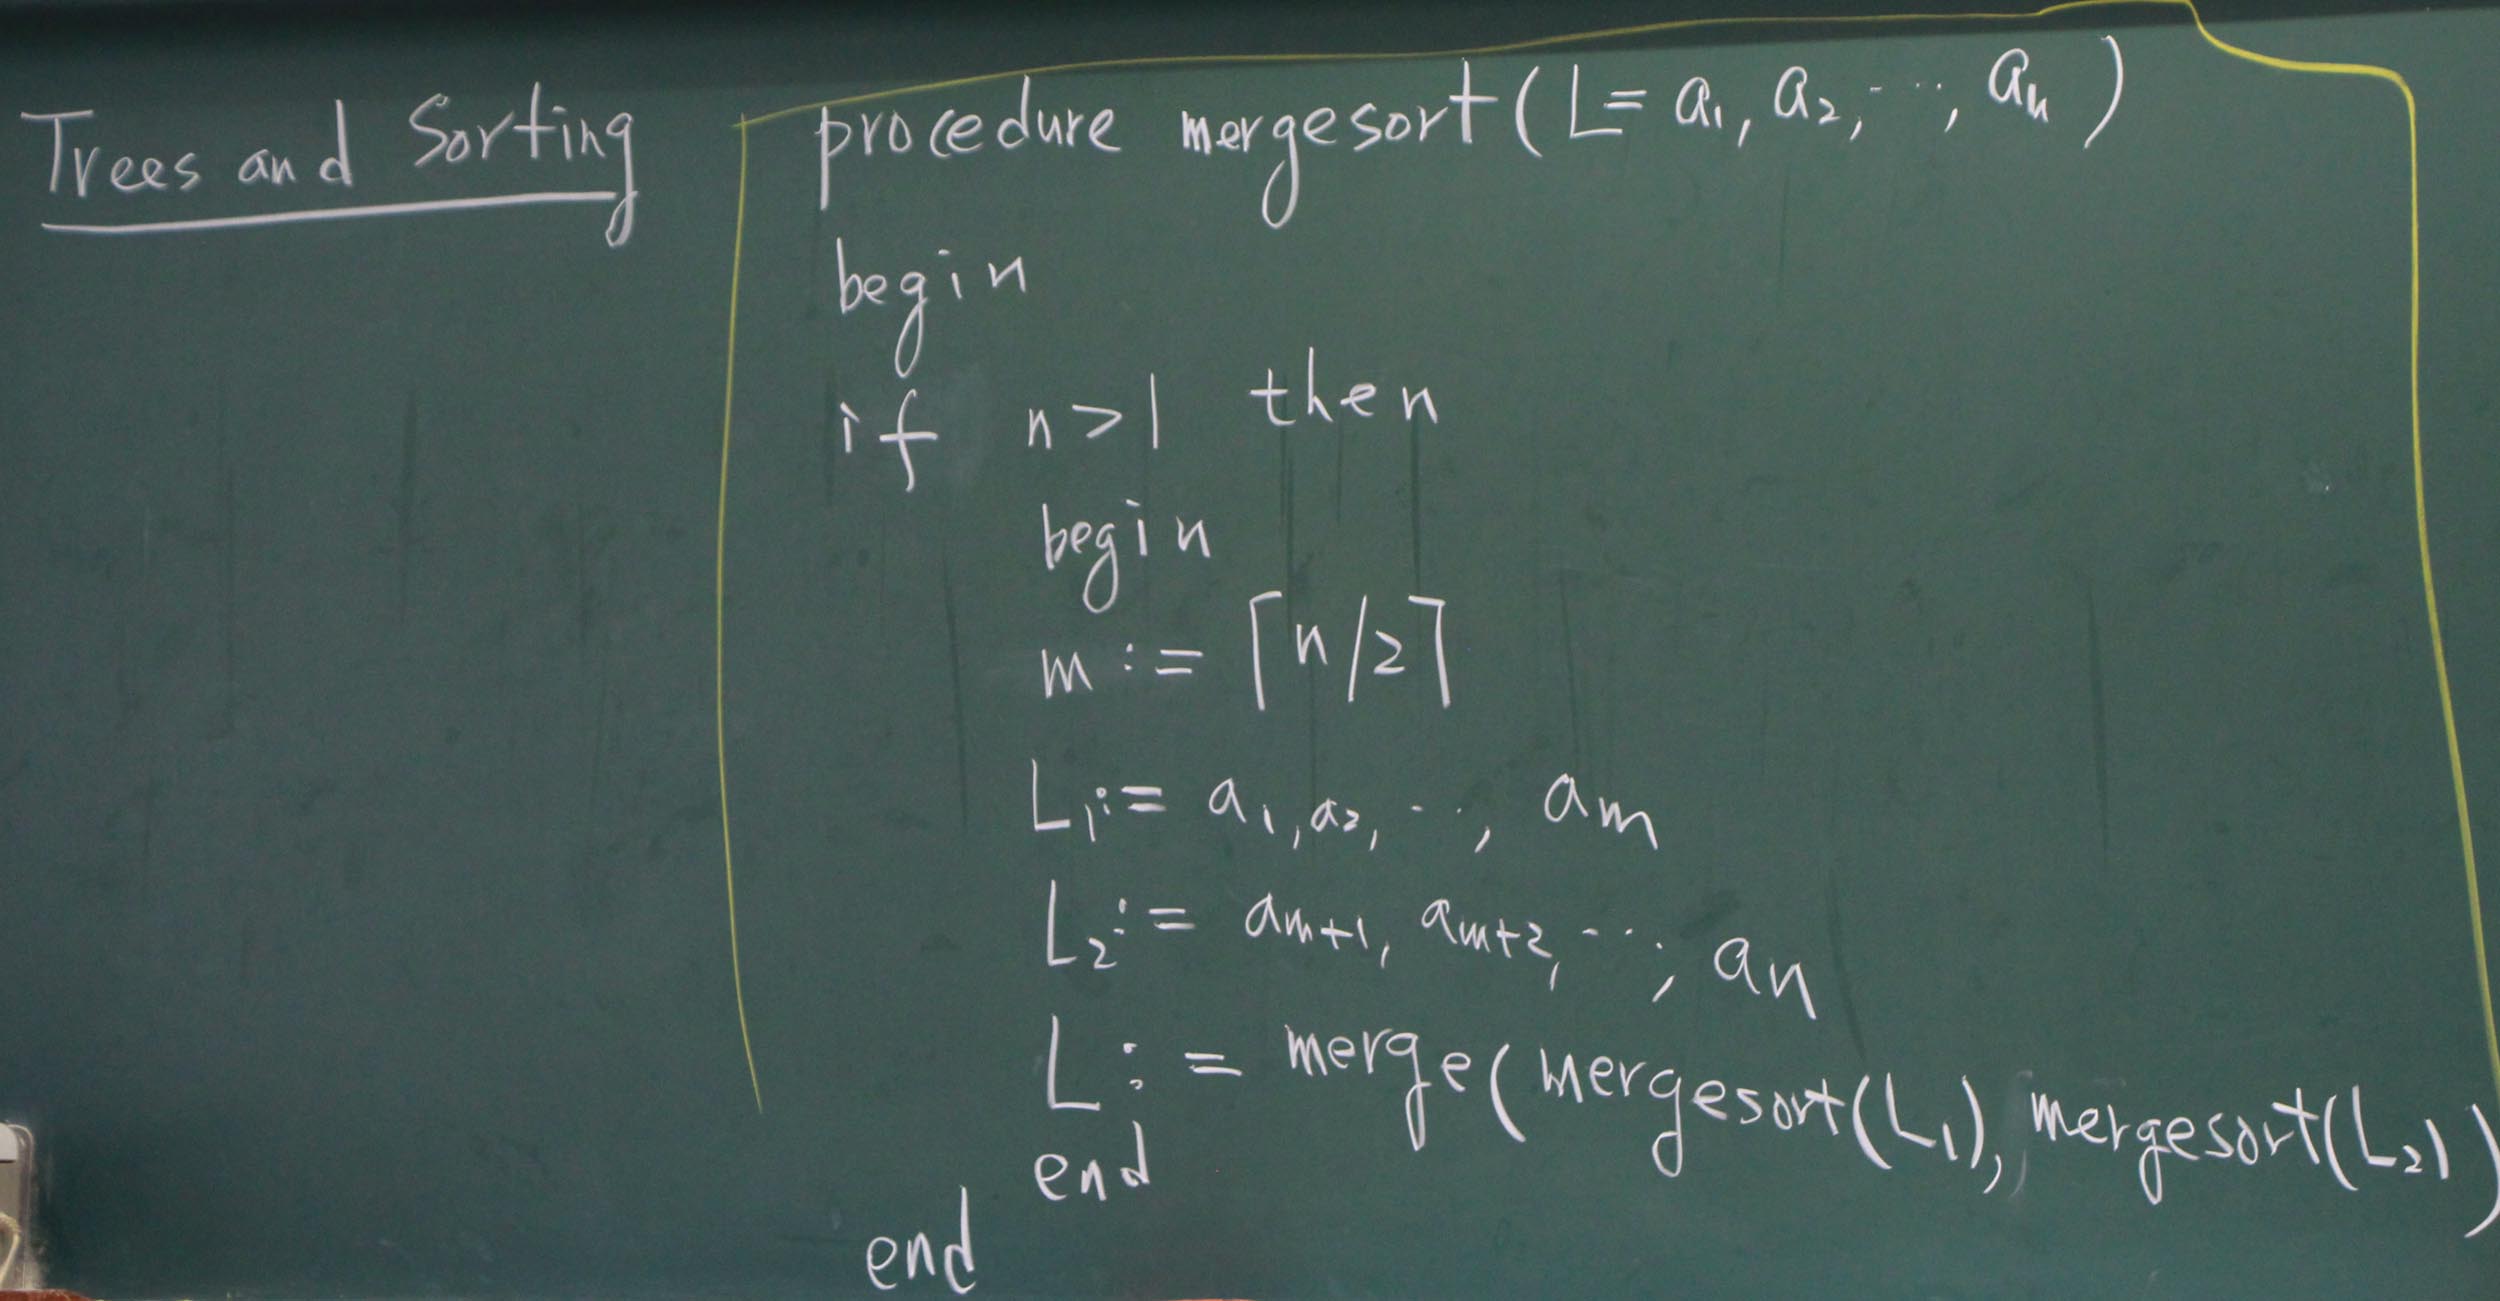 Trees and Sorting
procedure mergesort(L= a₁, a₂, ..., aₙ)
begin
if n>1 then
begin
m := ⌈n/2⌉
L₁:= a₁, a₂, ..., aₘ
L₂:= aₘ₊₁, aₘ₊₂, ..., aₙ
L := merge(mergesort(L₁), mergesort(L₂))
end
end